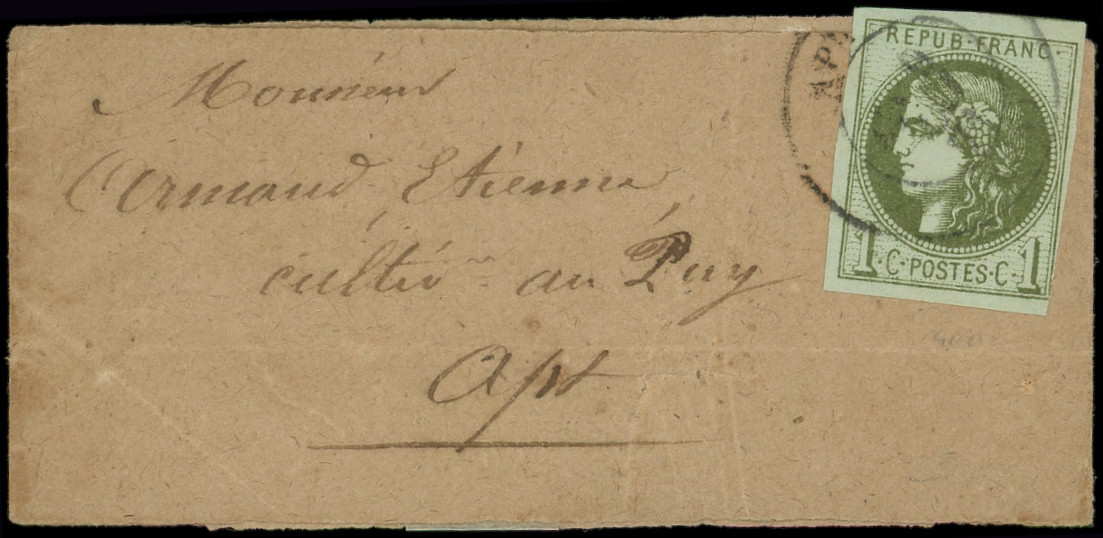 Monsieur
Armand Etienne
cultivr au Puy
Apt
APT
REPUB·FRANC·
1·C·POSTES·C·1